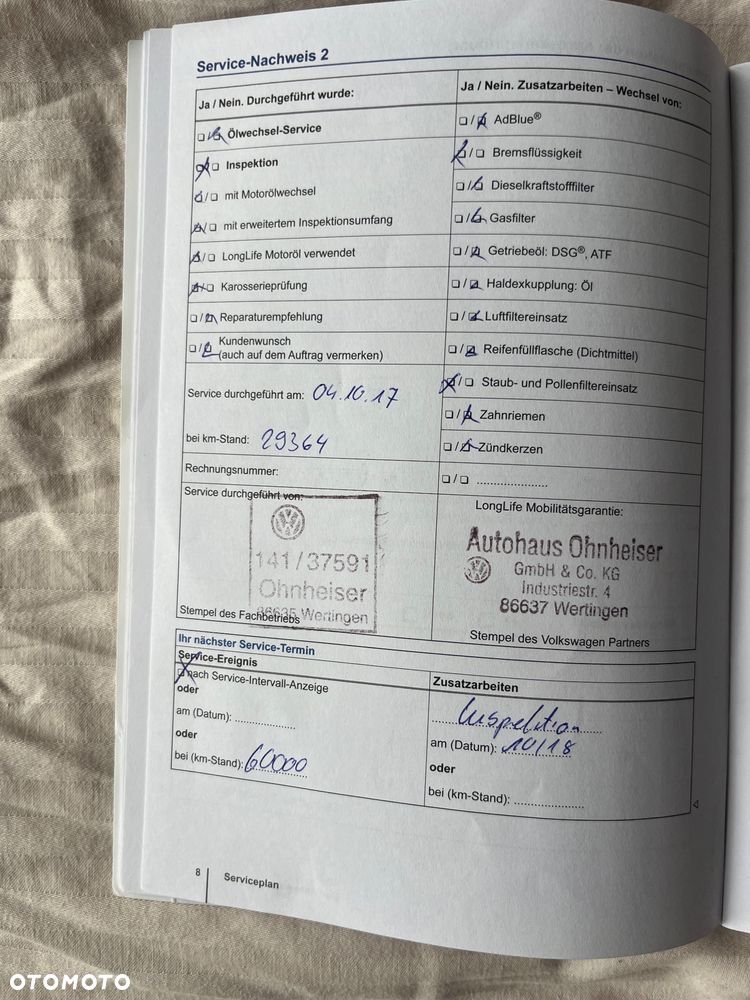 Service-Nachweis 2
Ja / Nein. Durchgeführt wurde:
❏ / ❏ Ölwechsel-Service
❏ / ❏ Inspektion
❏ / ❏ mit Motorölwechsel
❏ / ❏ mit erweitertem Inspektionsumfang
❏ / ❏ LongLife Motoröl verwendet
❏ / ❏ Karosserieprüfung
❏ / ❏ Reparaturempfehlung
❏ / ❏ Kundenwunsch
(auch auf dem Auftrag vermerken)
Service durchgeführt am: 04.10.17
bei km-Stand: 29364
Rechnungsnummer:
Service durchgeführt von:
141/37591
Ohnheiser
86635 Wertingen
Stempel des Fachbetriebs
Ja / Nein. Zusatzarbeiten – Wechsel von:
❏ / ❏ AdBlue®
❏ / ❏ Bremsflüssigkeit
❏ / ❏ Dieselkraftstofffilter
❏ / ❏ Gasfilter
❏ / ❏ Getriebeöl: DSG®, ATF
❏ / ❏ Haldexkupplung: Öl
❏ / ❏ Luftfiltereinsatz
❏ / ❏ Reifenfüllflasche (Dichtmittel)
❏ / ❏ Staub- und Pollenfiltereinsatz
❏ / ❏ Zahnriemen
❏ / ❏ Zündkerzen
❏ / ❏ .....................
LongLife Mobilitätsgarantie:
Autohaus Ohnheiser
GmbH & Co. KG
Industriestr. 4
86637 Wertingen
Stempel des Volkswagen Partners
Ihr nächster Service-Termin
Service-Ereignis
❏ nach Service-Intervall-Anzeige
oder
am (Datum): ..................
oder
bei (km-Stand): 60000
Zusatzarbeiten
Inspektion
am (Datum): 10/18
oder
bei (km-Stand): .....................
8 Serviceplan
OTOMOTO